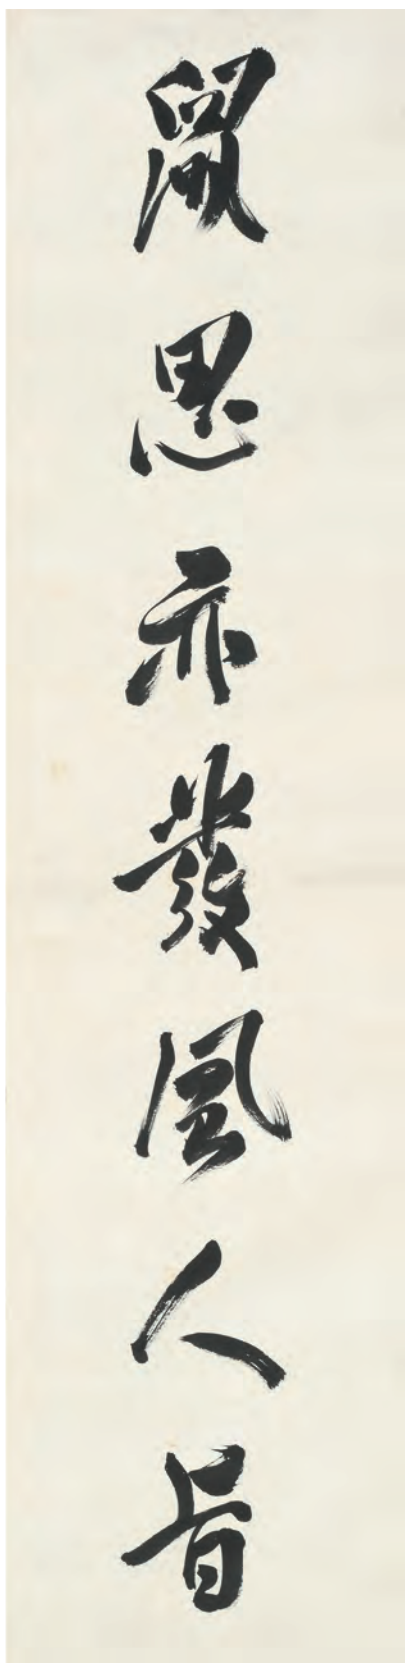 鼠思亦發風人旨